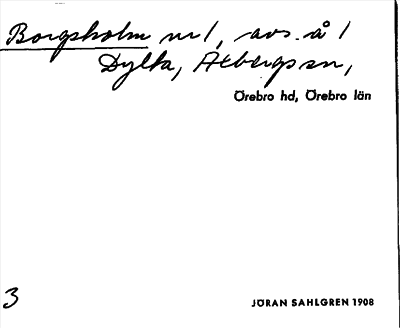 Borgsholm nr 1, avs. å 1
Dylta, Axbergs sn,
Örebro hd, Örebro län
3
JÖRAN SAHLGREN 1908